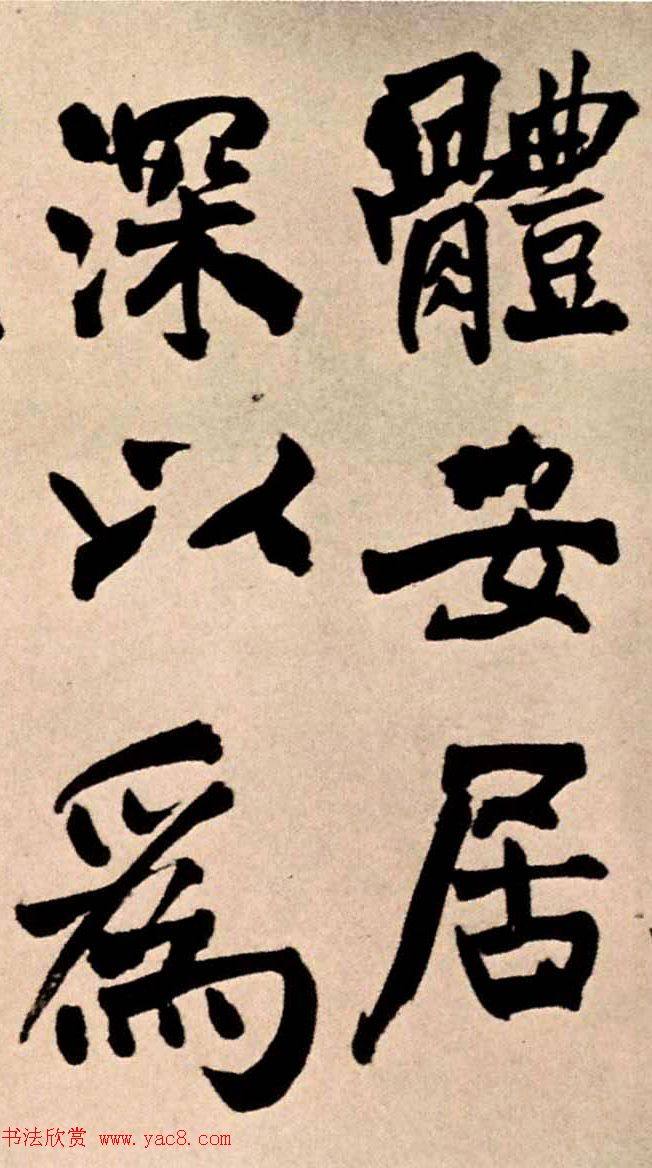 體安居
深以爲
书法欣赏 www.yac8.com